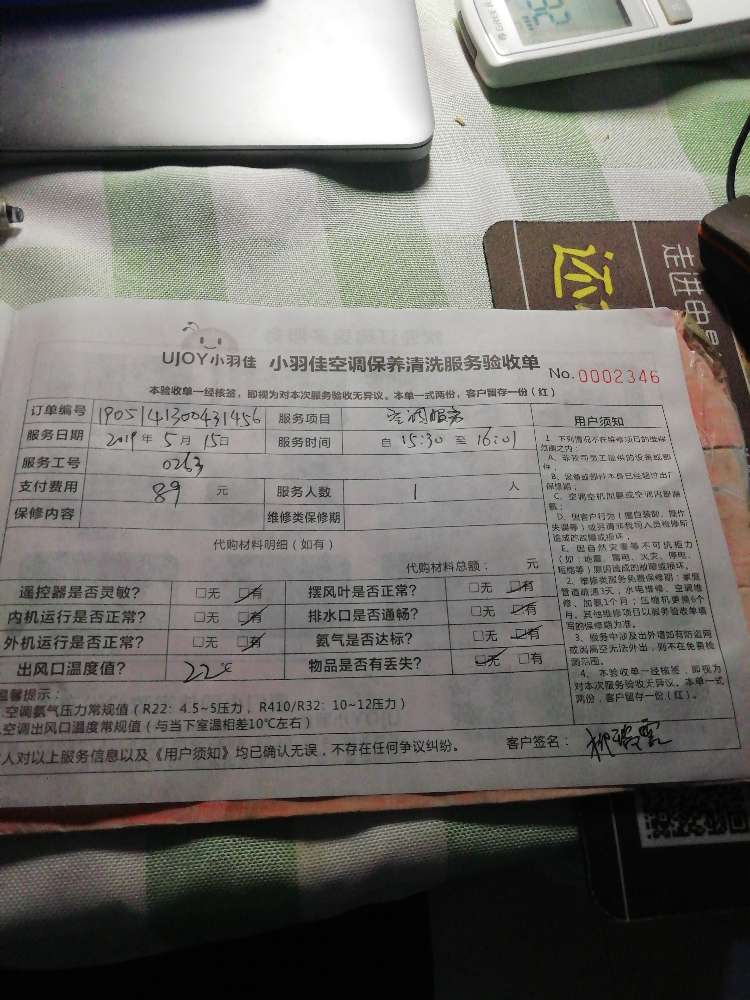 还
走进电
UJOY小羽佳 小羽佳空调保养清洗服务验收单 No.0002346
本验收单一经核签，即视为对本次服务验收无异议。本单一式两份，客户留存一份（红）
订单编号 1905141300431456 服务项目 空调服务
服务日期 2019年5月15日 服务时间 自15:30至16:01
服务工号 0263
支付费用 89 元 服务人数 1 人
保修内容 维修类保修期
代购材料明细（如有）
代购材料总额： 元
遥控器是否灵敏？ □无 □有 摆风叶是否正常？ □无 □有
内机运行是否正常？ □无 □有 排水口是否通畅？ □无 □有
外机运行是否正常？ □无 □有 氨气是否达标？ □无 □有
出风口温度值？ 22℃ 物品是否有丢失？ □无 □有
用户须知
1、下列情况不在维修项目的维保范围之内
A、非我司员工提供的设备或部件；
B、设备或部件本身已经超过出厂保修期；
C、空调空机加氨或空调内部漏氨；
D、因客户行为（擅自装卸、操作失误等）或另请非我司人员检修所造成的故障或损坏；
E、因自然灾害等不可抗力（如：地震、雷电、火灾、停电、短路等）原因造成的故障或损坏。
2、维修类服务免费保修期：家庭管道疏通3天，水电维修、空调维修、加氨1个月；压缩机更换6个月。其他维修项目以服务验收单填写的保修期为准。
3、服务中涉及出外墙如有防盗网或阁高空无法外出，则不在免费检测范围。
4、本验收单一经核签，即视为对本次服务验收无异议。本单一式两份，客户留存一份（红）。
温馨提示：
.空调氨气压力常规值（R22：4.5~5压力，R410/R32：10~12压力）
.空调出风口温度常规值（与当下室温相差10℃左右）
人对以上服务信息以及《用户须知》均已确认无误，不存在任何争议纠纷。 客户签名：